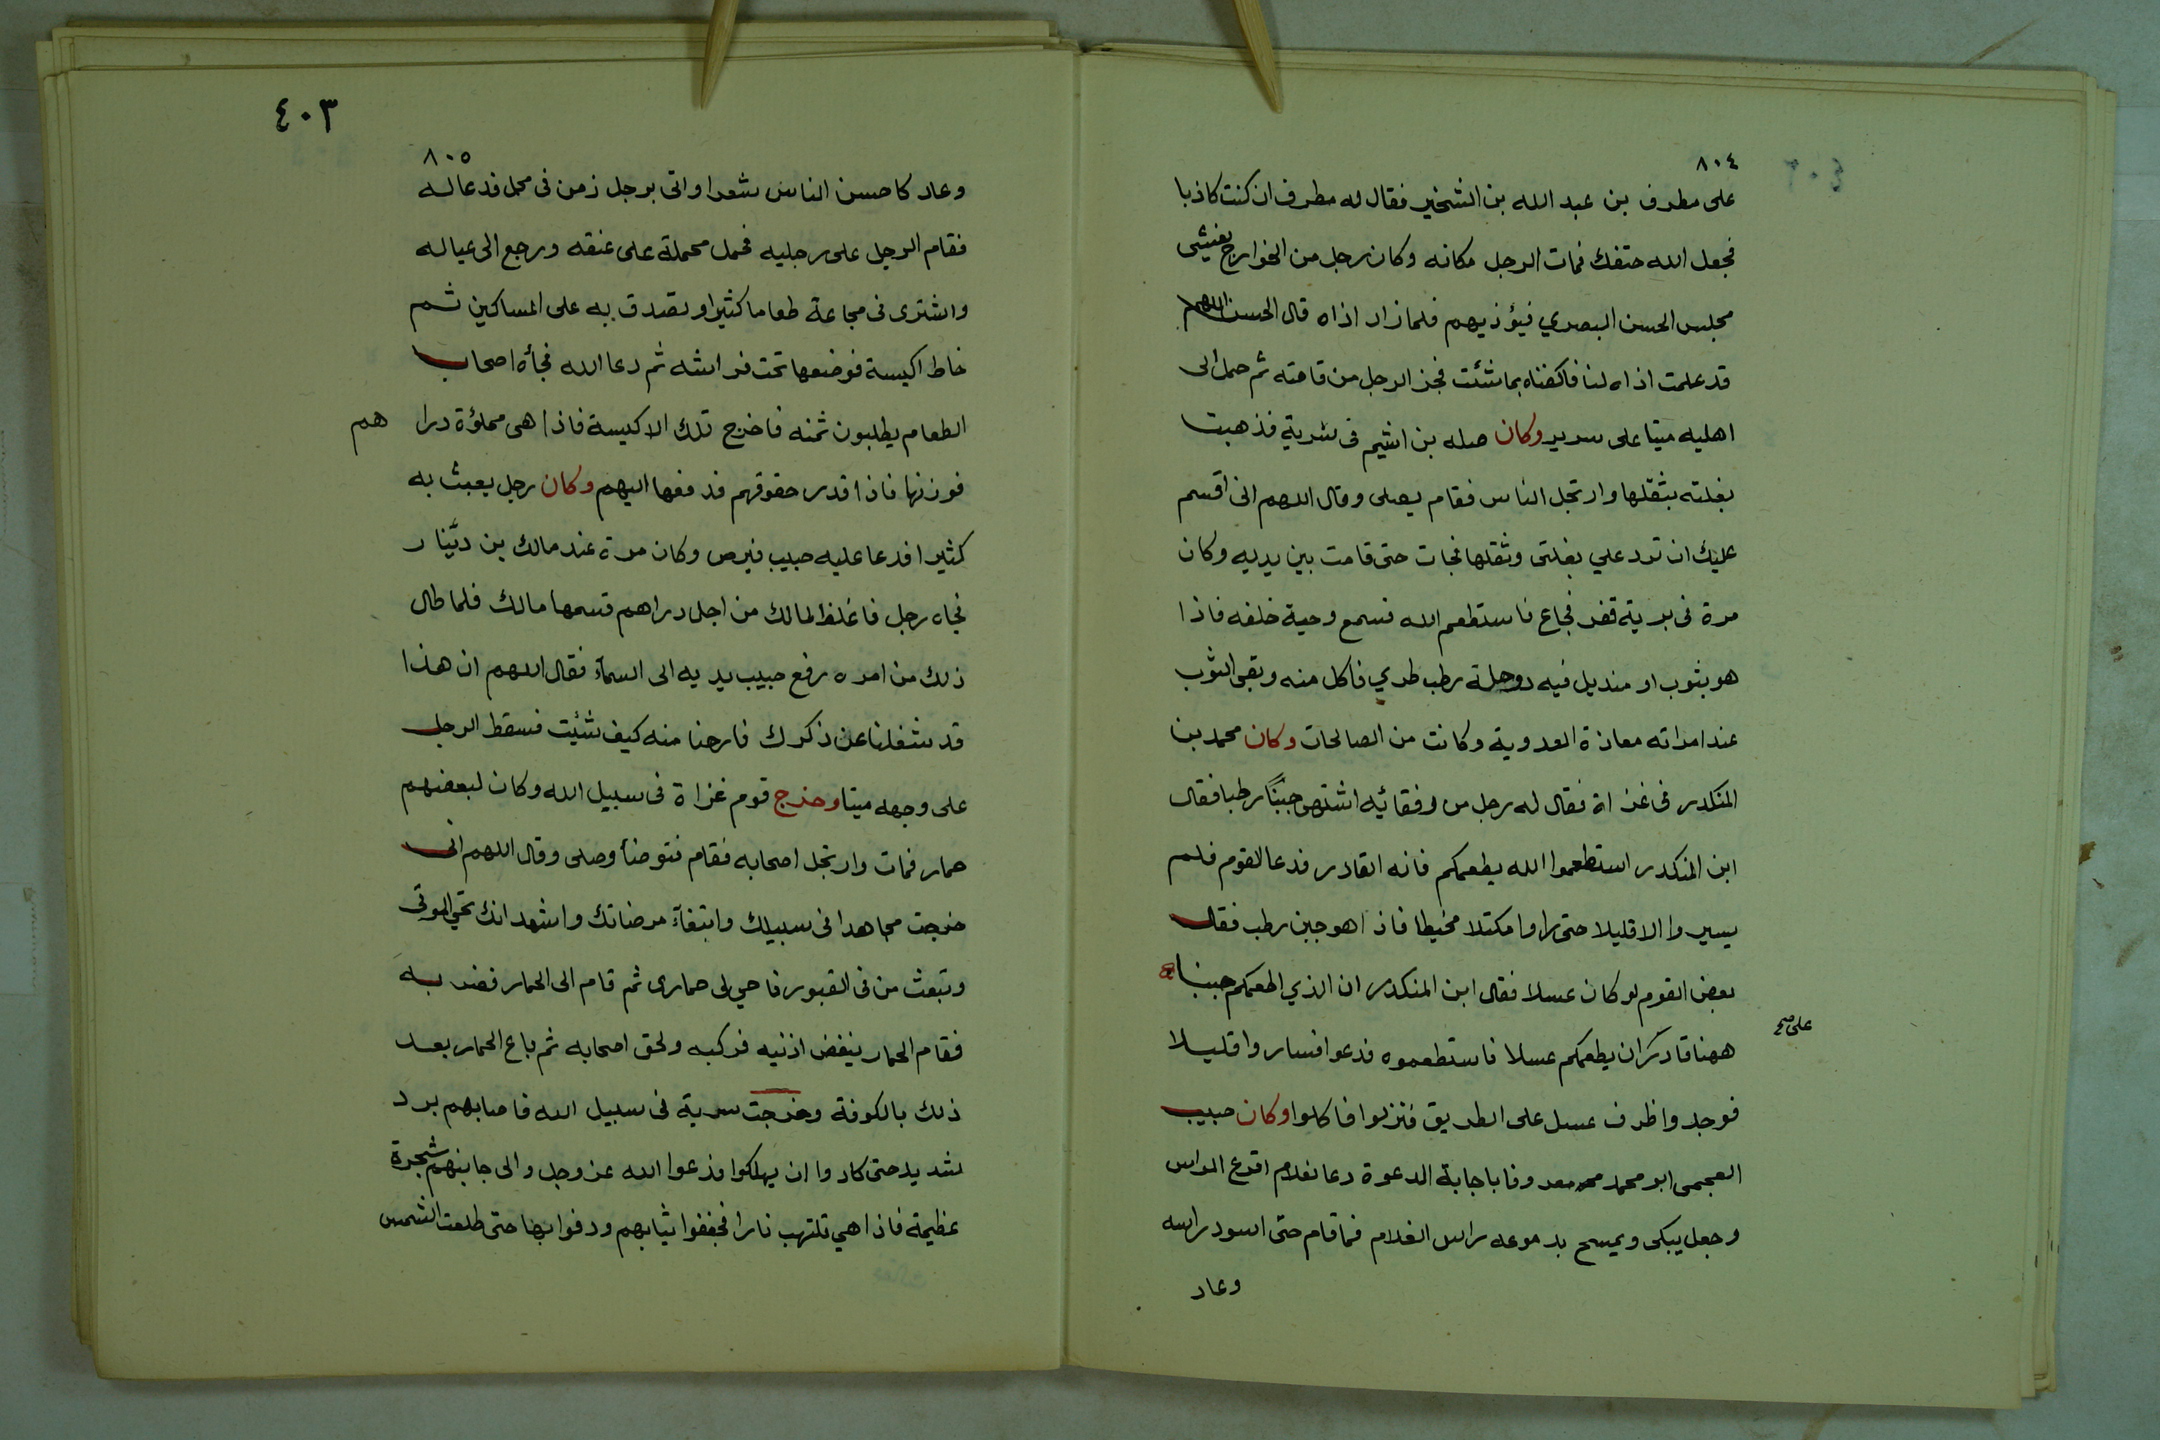 ٨٠٤
على مطرف بن عبد الله بن الشخير فقال له مطرف ان كنت كاذبا
فجعل الله حتفك فمات الرجل مكانه وكان رجل من الخوارج يغشى
مجلس الحسن البصري فيؤذيهم فلما زاد اذاه قال الحسن اللهم
قد علمت اذاه لنا فاكفناه بما شئت فخر الرجل من قامته ثم حمل الى
اهليه ميتا على سرير وكان صله بن اشيم فى سرية فذهبت
بغلته بثقلها وارتجل الناس فقام يصلى وقال اللهم انى اقسم
عليك ان ترد علي بغلتى وثقلها فجات حتى قامت بين يديه وكان
مرة فى برية قفر فجاع فاستطعم الله فسمع وجبة خلفه فاذا
هو بثوب او منديل فيه دوخلة رطب طري فاكل منه وبقى الثوب
عند امراته معاذة العدوية وكانت من الصالحات وكان محمد بن
المنكدر فى غزاة فقال له رجل من رفقائه اشتهى جبنًا رطبا فقال
ابن المنكدر استطعموا الله يطعمكم فانه القادر فدعا القوم فلم
يسيروا الا قليلا حتى راوا مكتلا مخيطا فاذا هو جبن رطب فقال
بعض القوم لو كان عسلا فقال ابن المنكدر ان الذي اطعمكم جبنا
ههنا قادر ان يطعمكم عسلا فاستطعموه فدعوا فساروا قليلا
على صح
فوجدوا ظرف عسل على الطريق فنزلوا فاكلوا وكان حبيب
العجمى ابو محمد معروفا باجابة الدعوة دعا لغلام اقرع الراس
وجعل يبكى ويمسح بدموعه راس الغلام فما قام حتى اسود راسه
وعاد
٤٠٣
٨٠٥
وعاد كاحسن الناس شعرا واتى برجل زمن فى محمل فدعا له
فقام الرجل على رجليه فحمل محمله على عنقه ورجع الى عياله
واشترى فى مجاعة طعاما كثيرا وتصدق به على المساكين ثم
خاط اكيسة فوضعها تحت فراشه ثم دعا الله فجأه اصحاب
الطعام يطلبون ثمنه فاخرج تلك الاكيسة فاذا هى مملؤة درا هم
فوزنها فاذا قدر حقوقهم فدفعها اليهم وكان رجل يعبث به
كثيرا فدعا عليه حبيب فبرص وكان مرة عند مالك بن دينار
فجاه رجل فاغلظ لمالك من اجل دراهم قسمها مالك فلما طال
ذلك من امره رفع حبيب يديه الى السمآء فقال اللهم ان هذا
قد شغلنا عن ذكرك فارحنا منه كيف شئت فسقط الرجل
على وجهه ميتا وخرج قوم غزاة فى سبيل الله وكان لبعضهم
حمار فمات وارتجل اصحابه فقام فتوضأ وصلى وقال اللهم انى
خرجت مجاهدا فى سبيلك وابتغآء مرضاتك واشهد انك تحي الموتى
وتبعث من فى القبور فاحي لى حمارى ثم قام الى الحمار فضربه
فقام الحمار ينفض اذنيه فركبه ولحق اصحابه ثم باع الحمار بعد
ذلك بالكوفة وخرجت سرية فى سبيل الله فاصابهم برد
شديد حتى كادوا ان يهلكوا فدعوا الله عز وجل والى جانبهم شجرة
عظيمة فاذا هي تلتهب نارا فجففوا ثيابهم ودفوا بها حتى طلعت الشمس